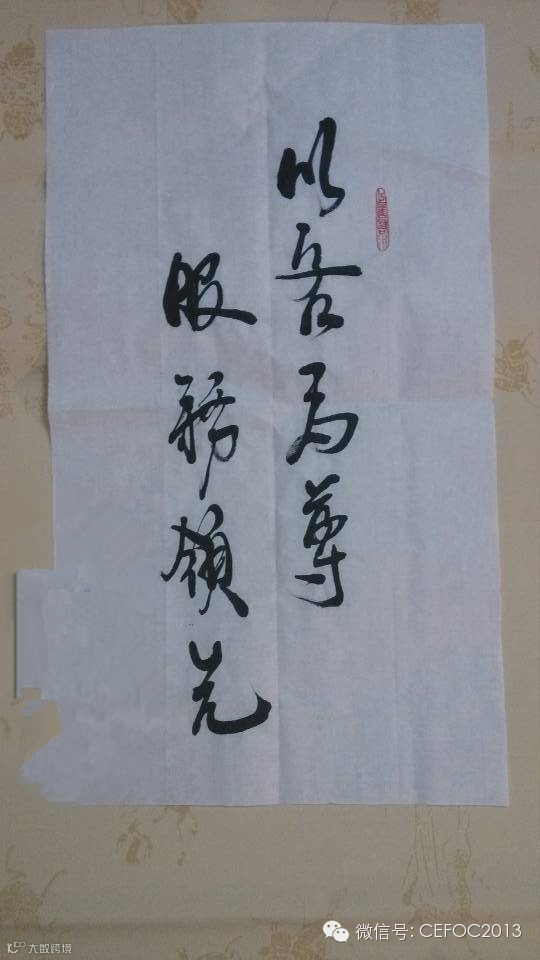 以吾为尊
服務領先
微信号: CEFOC2013
大数跨境